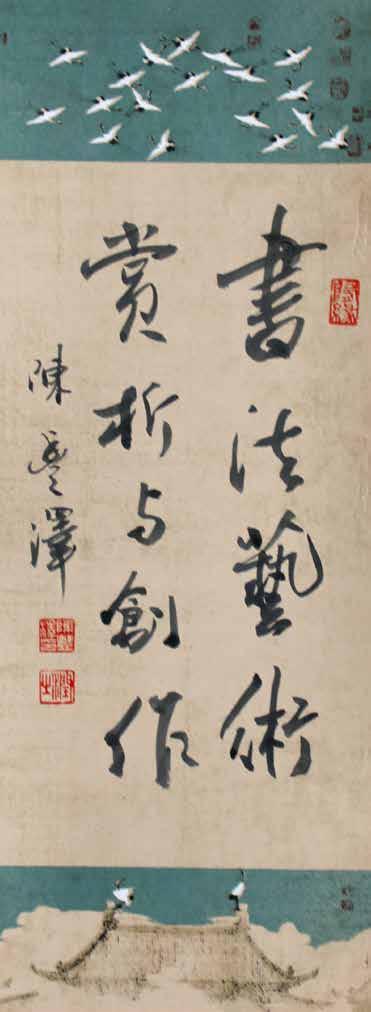 書法藝術
賞析与創作
陳澤